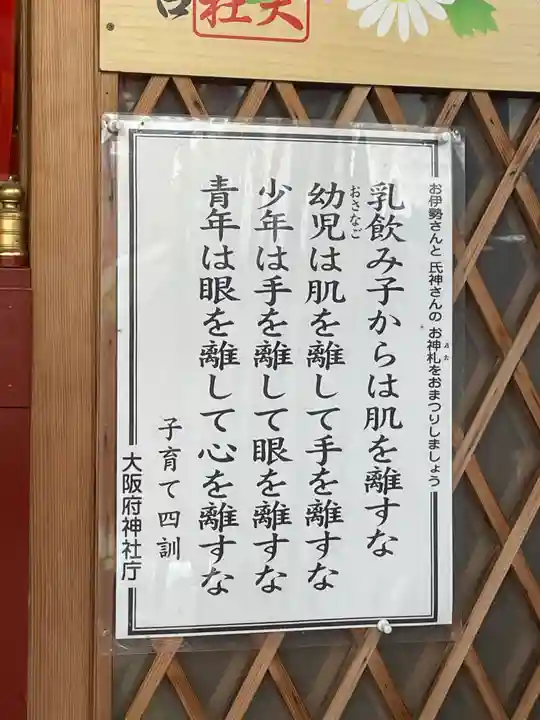 お伊勢さんと 氏神さんの お神札をおまつりしましょう
乳飲み子からは肌を離すな
幼児は肌を離して手を離すな
おさなご
少年は手を離して眼を離すな
青年は眼を離して心を離すな
子育て四訓
大阪府神社庁